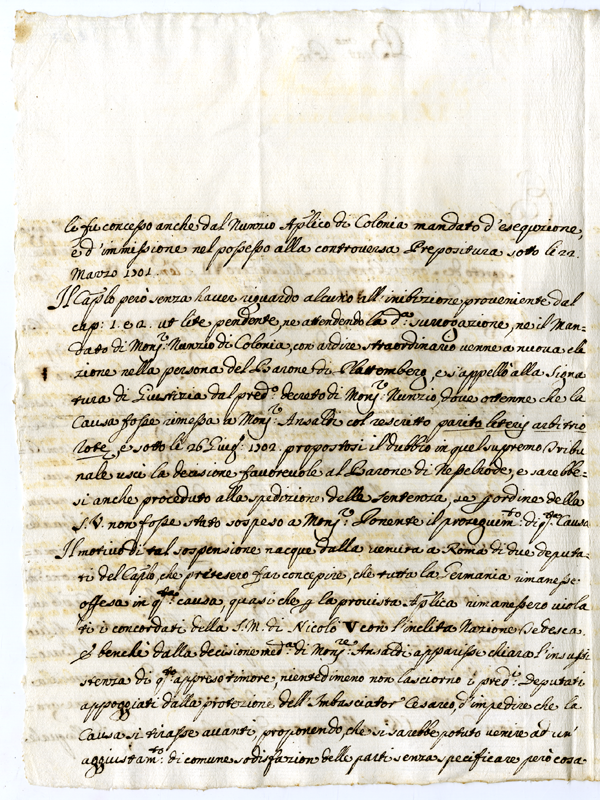 li fu concesso anche dal Nunzio Ap'lico di Colonia mandato d'eseqúzione,
e d'immissione nel possesso alla controversa Prepositura sotto li 22.
Marzo 1701.
Il Cap'lo però senza haver riguardo alcuno all'inibizione proveniente dal
cap: 1. e 2. ut lite pendente, ne attendendo la d.ª surrogazione, ne il Man-
dato di Mons.r Nunzio di Colonia, con ardire straordinario venne a nuova ele
zione nella persona del Barone di Plattemberg, e s'appellò alla Signa
tura di Giustizia dal pred.º decreto di Mons.r Nunzio, dove ottenne che la
Causa fosse rimessa a Mons.r Ansaldi col rescritto parito literis arbitrio
Rotę, e sotto li 26 Giug.º 1702. propostosi il dubbio in quel supremo Tribu
nale uscì la decisione favorevole al Barone di Nesselrode, e sarebbe-
si anche proceduto alla spedizione della Sentenza, se p ordine della
S. V. non fosse stato sospeso a Mons.r Ponente il proseguim.to di q.ta Causa
Il motivo di tal sospensione nacque dalla venuta a Roma di due deputa-
ti del Cap'lo, che pretesero far concepire, che tutta la Germania rimanesse
offesa in q.ta causa, quasi che p la provista Ap'lica rimanessero viola
ti i concordati della S. M. di Nicolò V con l'inclita Nazione Tedesca.
E benche dalla decisione med.ma di Mons.r Ansaldi apparisse chiara l'insussi
stenza di q.to appreso timore, nientedimeno non lasciorno i pred.i Deputati
appoggiati dalla protezione dell'Imbasciator Cesareo, d'impedire che la
Causa si tirasse avanti, proponendo, che si sarebbe potuto venire ad un'
aggiustam.to di comune sodisfazion delle parti senza specificare però cosa